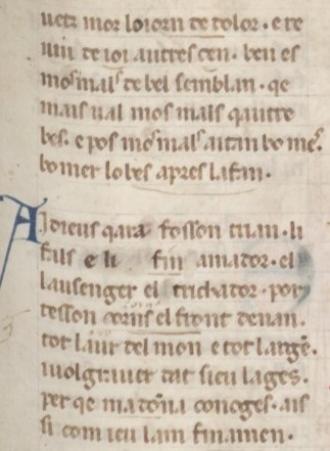 uetz mor lo iorn de dolor · e de
uiu de ioi autres cen · ben es
mos mals de bel semblan · qe
mais ual mos mals qautre
bes · e pos mos mals aitan bo mes ·
bo mer lo bes apres lafan ·
Ai dieus qara fosson trian · li
fals e li fin amador · el
lausenger el trichador · por
tesson corns el front denan ·
tot laur del mon e tot largen ·
i uolgr auer dat sieu lages ·
per qe ma dona conoges · ais
si com ieu lam finamen ·